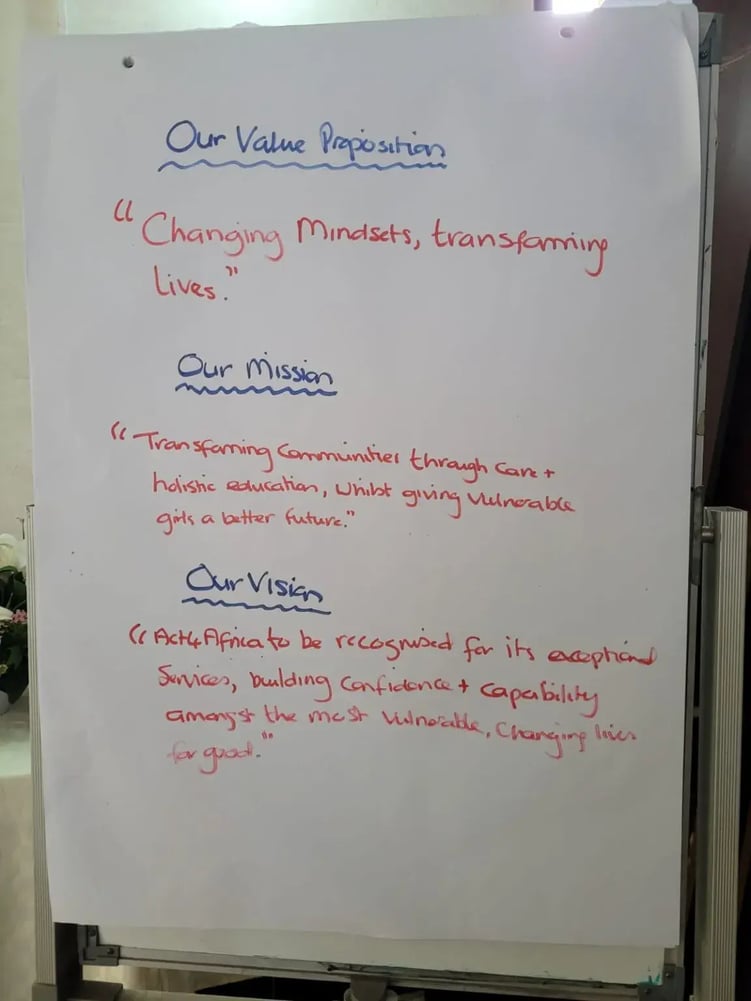 Our Value Proposition
"Changing Mindsets, transforming
lives."
Our Mission
"Transforming Communities through Care +
holistic education, whilst giving vulnerable
girls a better future."
Our Vision
"Act4Africa to be recognised for its exceptional
Services, building Confidence + capability
amongst the most vulnerable, Changing lives
for good."